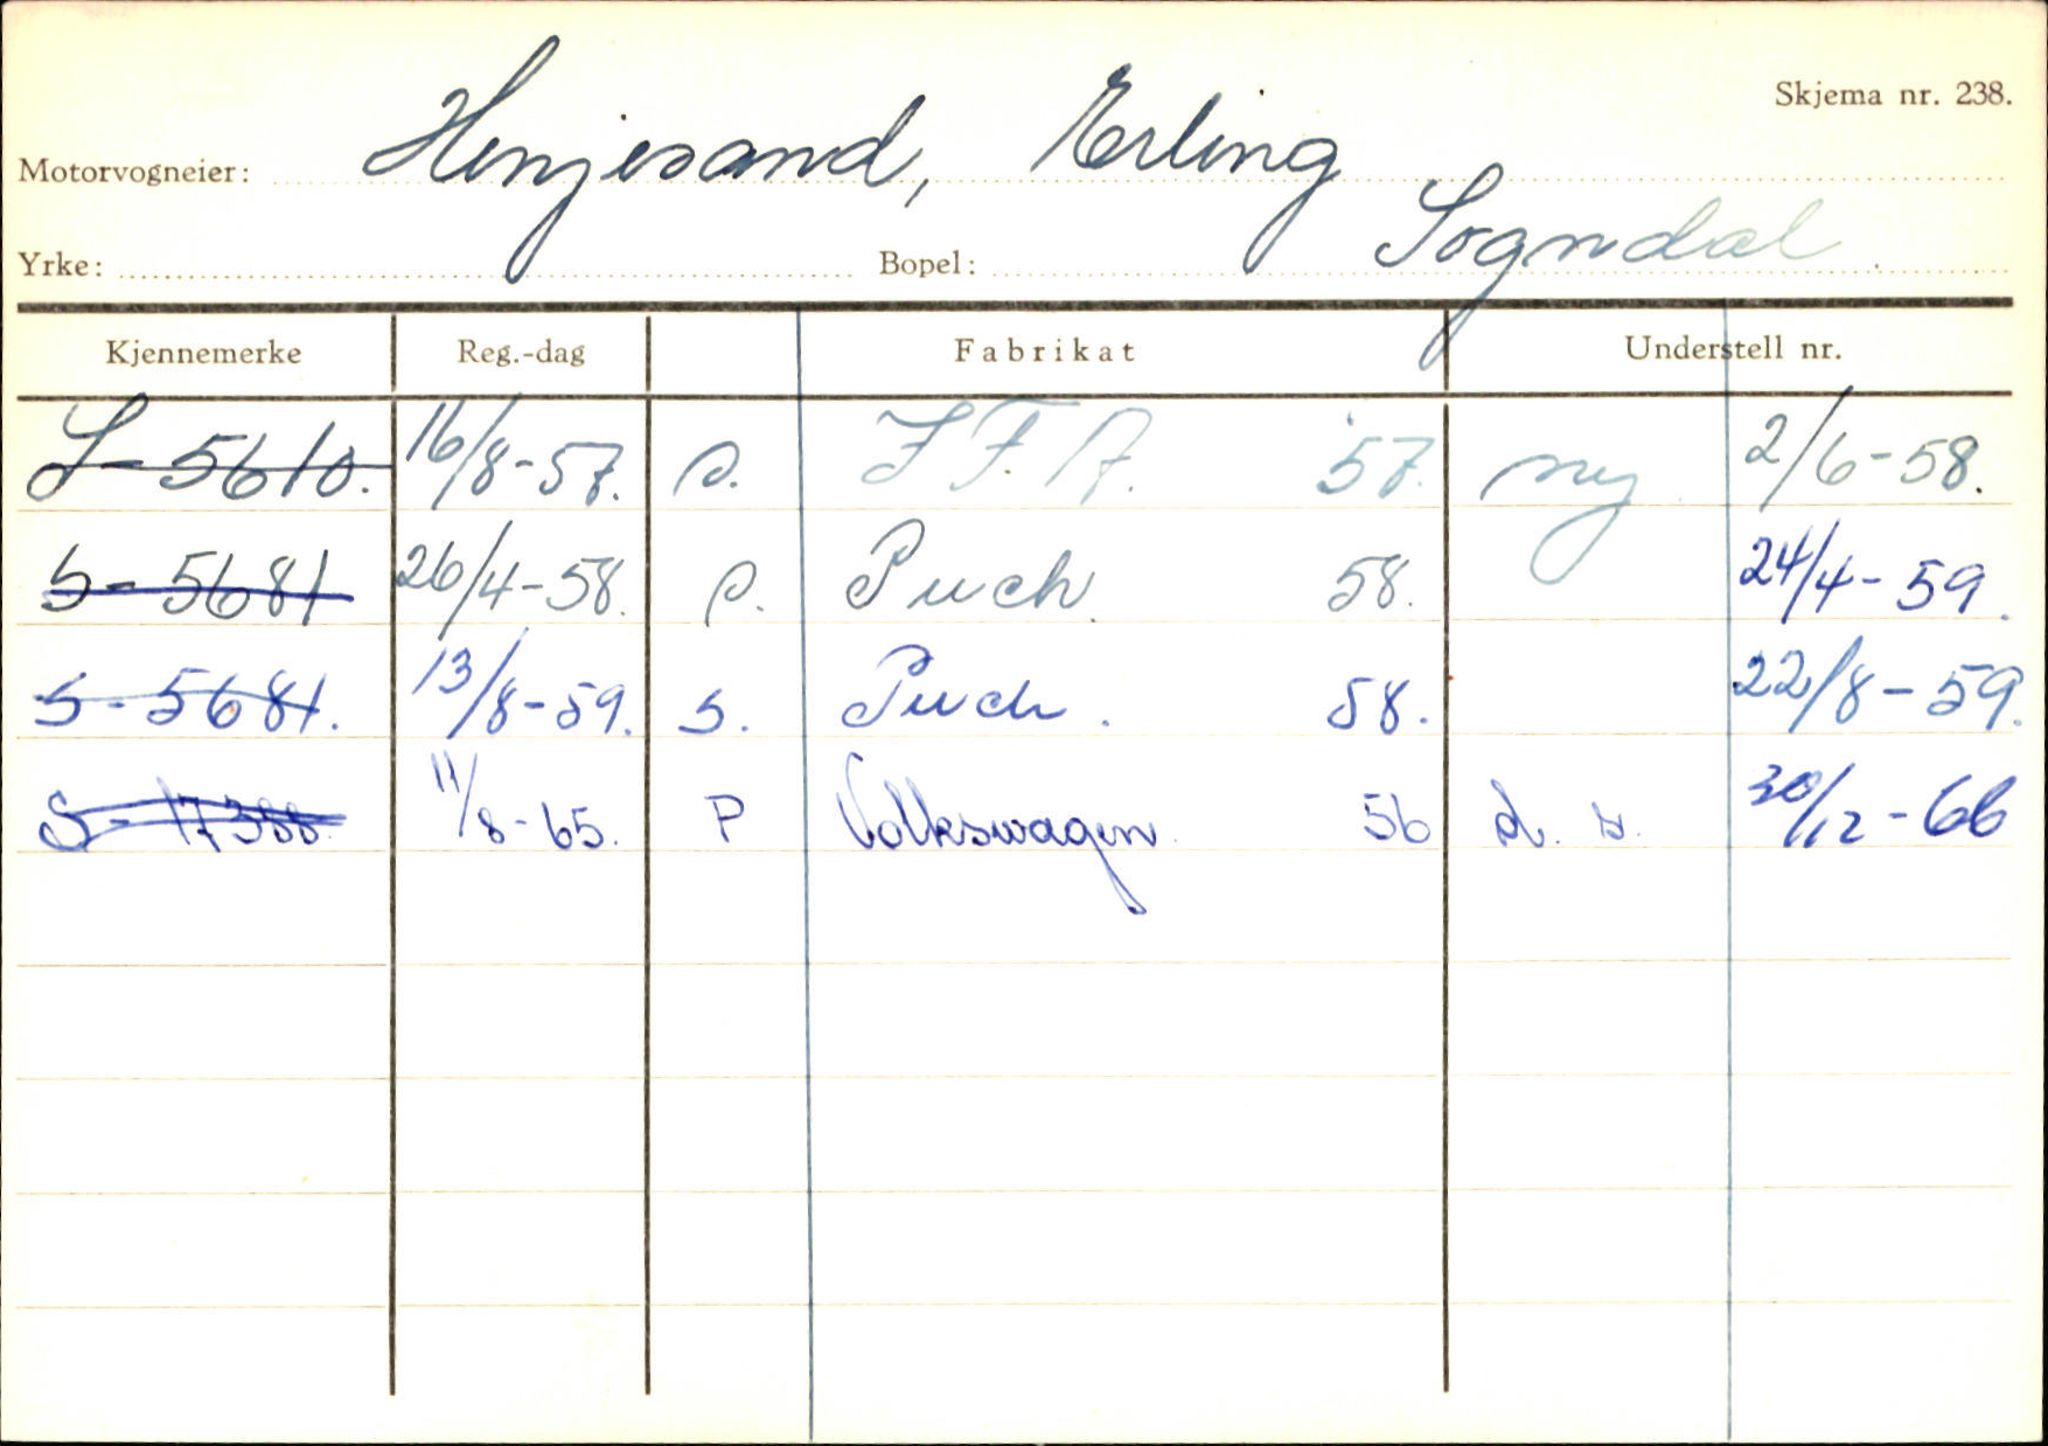 Skjema nr. 238.
Motorvogneier: Henjesand, Erling
Yrke: Bopel: Sogndal
Kjennemerke Reg.-dag Fabrikat Understell nr.
S-5610. 16/8-57. s. 57. ny 2/6-58.
S-5681 26/4-58. s. Puch 58. 24/4-59.
S-5681. 13/8-59. s. Puch. 58. 22/8-59.
S-17388. 11/8-65. P Volkswagen 56 d. s. 30/12-66